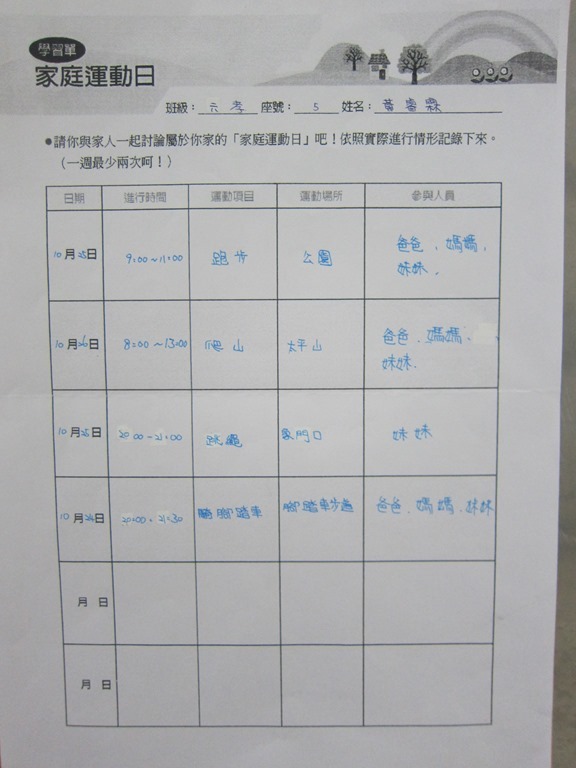 學習單
家庭運動日
班級：六孝 座號：5 姓名：黃睿霖
●請你與家人一起討論屬於你家的「家庭運動日」吧！依照實際進行情形記錄下來。
（一週最少兩次呵！）
日期 進行時間 運動項目 運動場所 參與人員
10月25日 9:00~11:00 跑步 公園 爸爸、媽媽、
妹妹、
10月26日 8:00~13:00 爬山 太平山 爸爸、媽媽、
妹妹、
10月25日 20:00-21:00 跳繩 家門口 妹妹
10月26日 20:00-21:30 騎腳踏車 腳踏車步道 爸爸、媽媽、妹妹
月 日
月 日